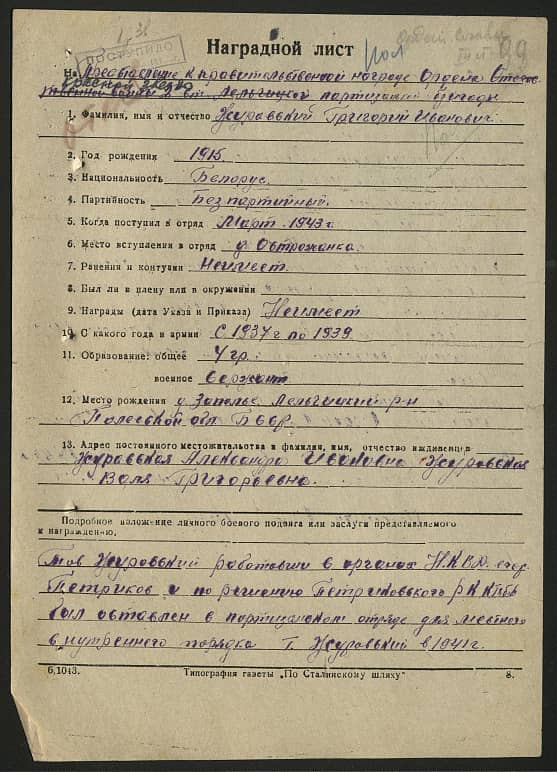 1, 38
ПОСТУПИЛО
Орден Славы
III ст.
99
Наградной лист
На Представление к правительственной награде Ордена Отече-
Красной Звезды
ственной войны 2 ст. Лельчицкой партизанской бригады
1. Фамилия, имя и отчество Журавский Григорий Иванович
2. Год рождения 1915
3. Национальность Белорус
4. Партийность Безпартийный
5. Когда поступил в отряд Март 1943 г
6. Место вступления в отряд д. Острожанка
7. Ранения и контузии Неимеет
8. Был ли в плену или в окружении
9. Награды (дата Указа и Приказа) Неимеет
10. С какого года в армии С 1937 г по 1939
11. Образование: общее 4 гр.
военное Сержант
12. Место рождения д. Заполье Лельчицкий р-н
Полесской обл БССР.
13. Адрес постоянного местожительства и фамилия, имя, отчество иждивенцев
Журавская Александра Ивановна Журавская
Валя Григорьевна.
Подробное изложение личного боевого подвига или заслуги представляемого
к награждению.
Тов Журавский работавши в органах Н.К.В.Д.
Петриков и по решению Петриковского РК КПбБ
был оставлен в партизанском отряде для местного
внутреннего порядка Т. Журавский в 1941 г.
6,1043. Типография газеты „По Сталинскому шляху“ 8.